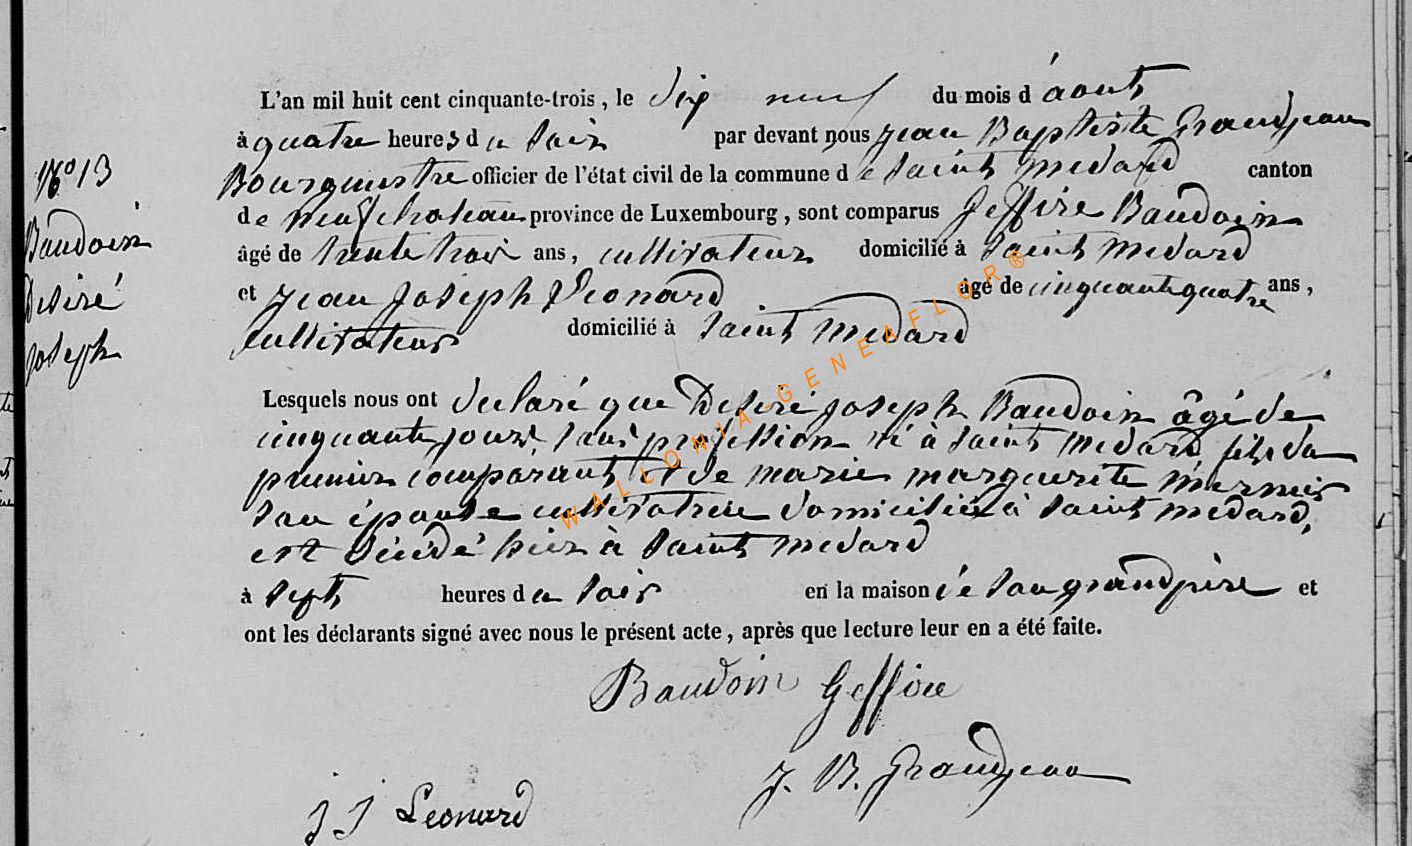 L'an mil huit cent cinquante-trois, le dix neuf du mois d'aout
à quatre heures du soir par devant nous Jean Baptiste Grandjean
N° 13
Bourguestre officier de l'état civil de la commune de Saint Medard canton
de Neufchateau province de Luxembourg, sont comparus Jeffire Baudoin
Baudoin
âgé de trente trois ans, cultivateur domicilié à Saint Medard
Desiré
et Jean Joseph Leonard âgé de cinquante quatre ans,
Joseph
Cultivateur domicilié à Saint Medard
Lesquels nous ont declaré que Desiré Joseph Baudoin âgé de
cinquante jours sans profession né à Saint Medard fils du
premier comparant et de marie marguerite
son épouse cultivatrice domiciliée à Saint Medard,
est décédé hier à Saint Medard
à sept heures du soir en la maison de son grand père et
ont les déclarants signé avec nous le présent acte, après que lecture leur en a été faite.
Baudoin Geffire
J. B. Grandjean
J J Leonard
WALLONIA-GENEAFLOR®